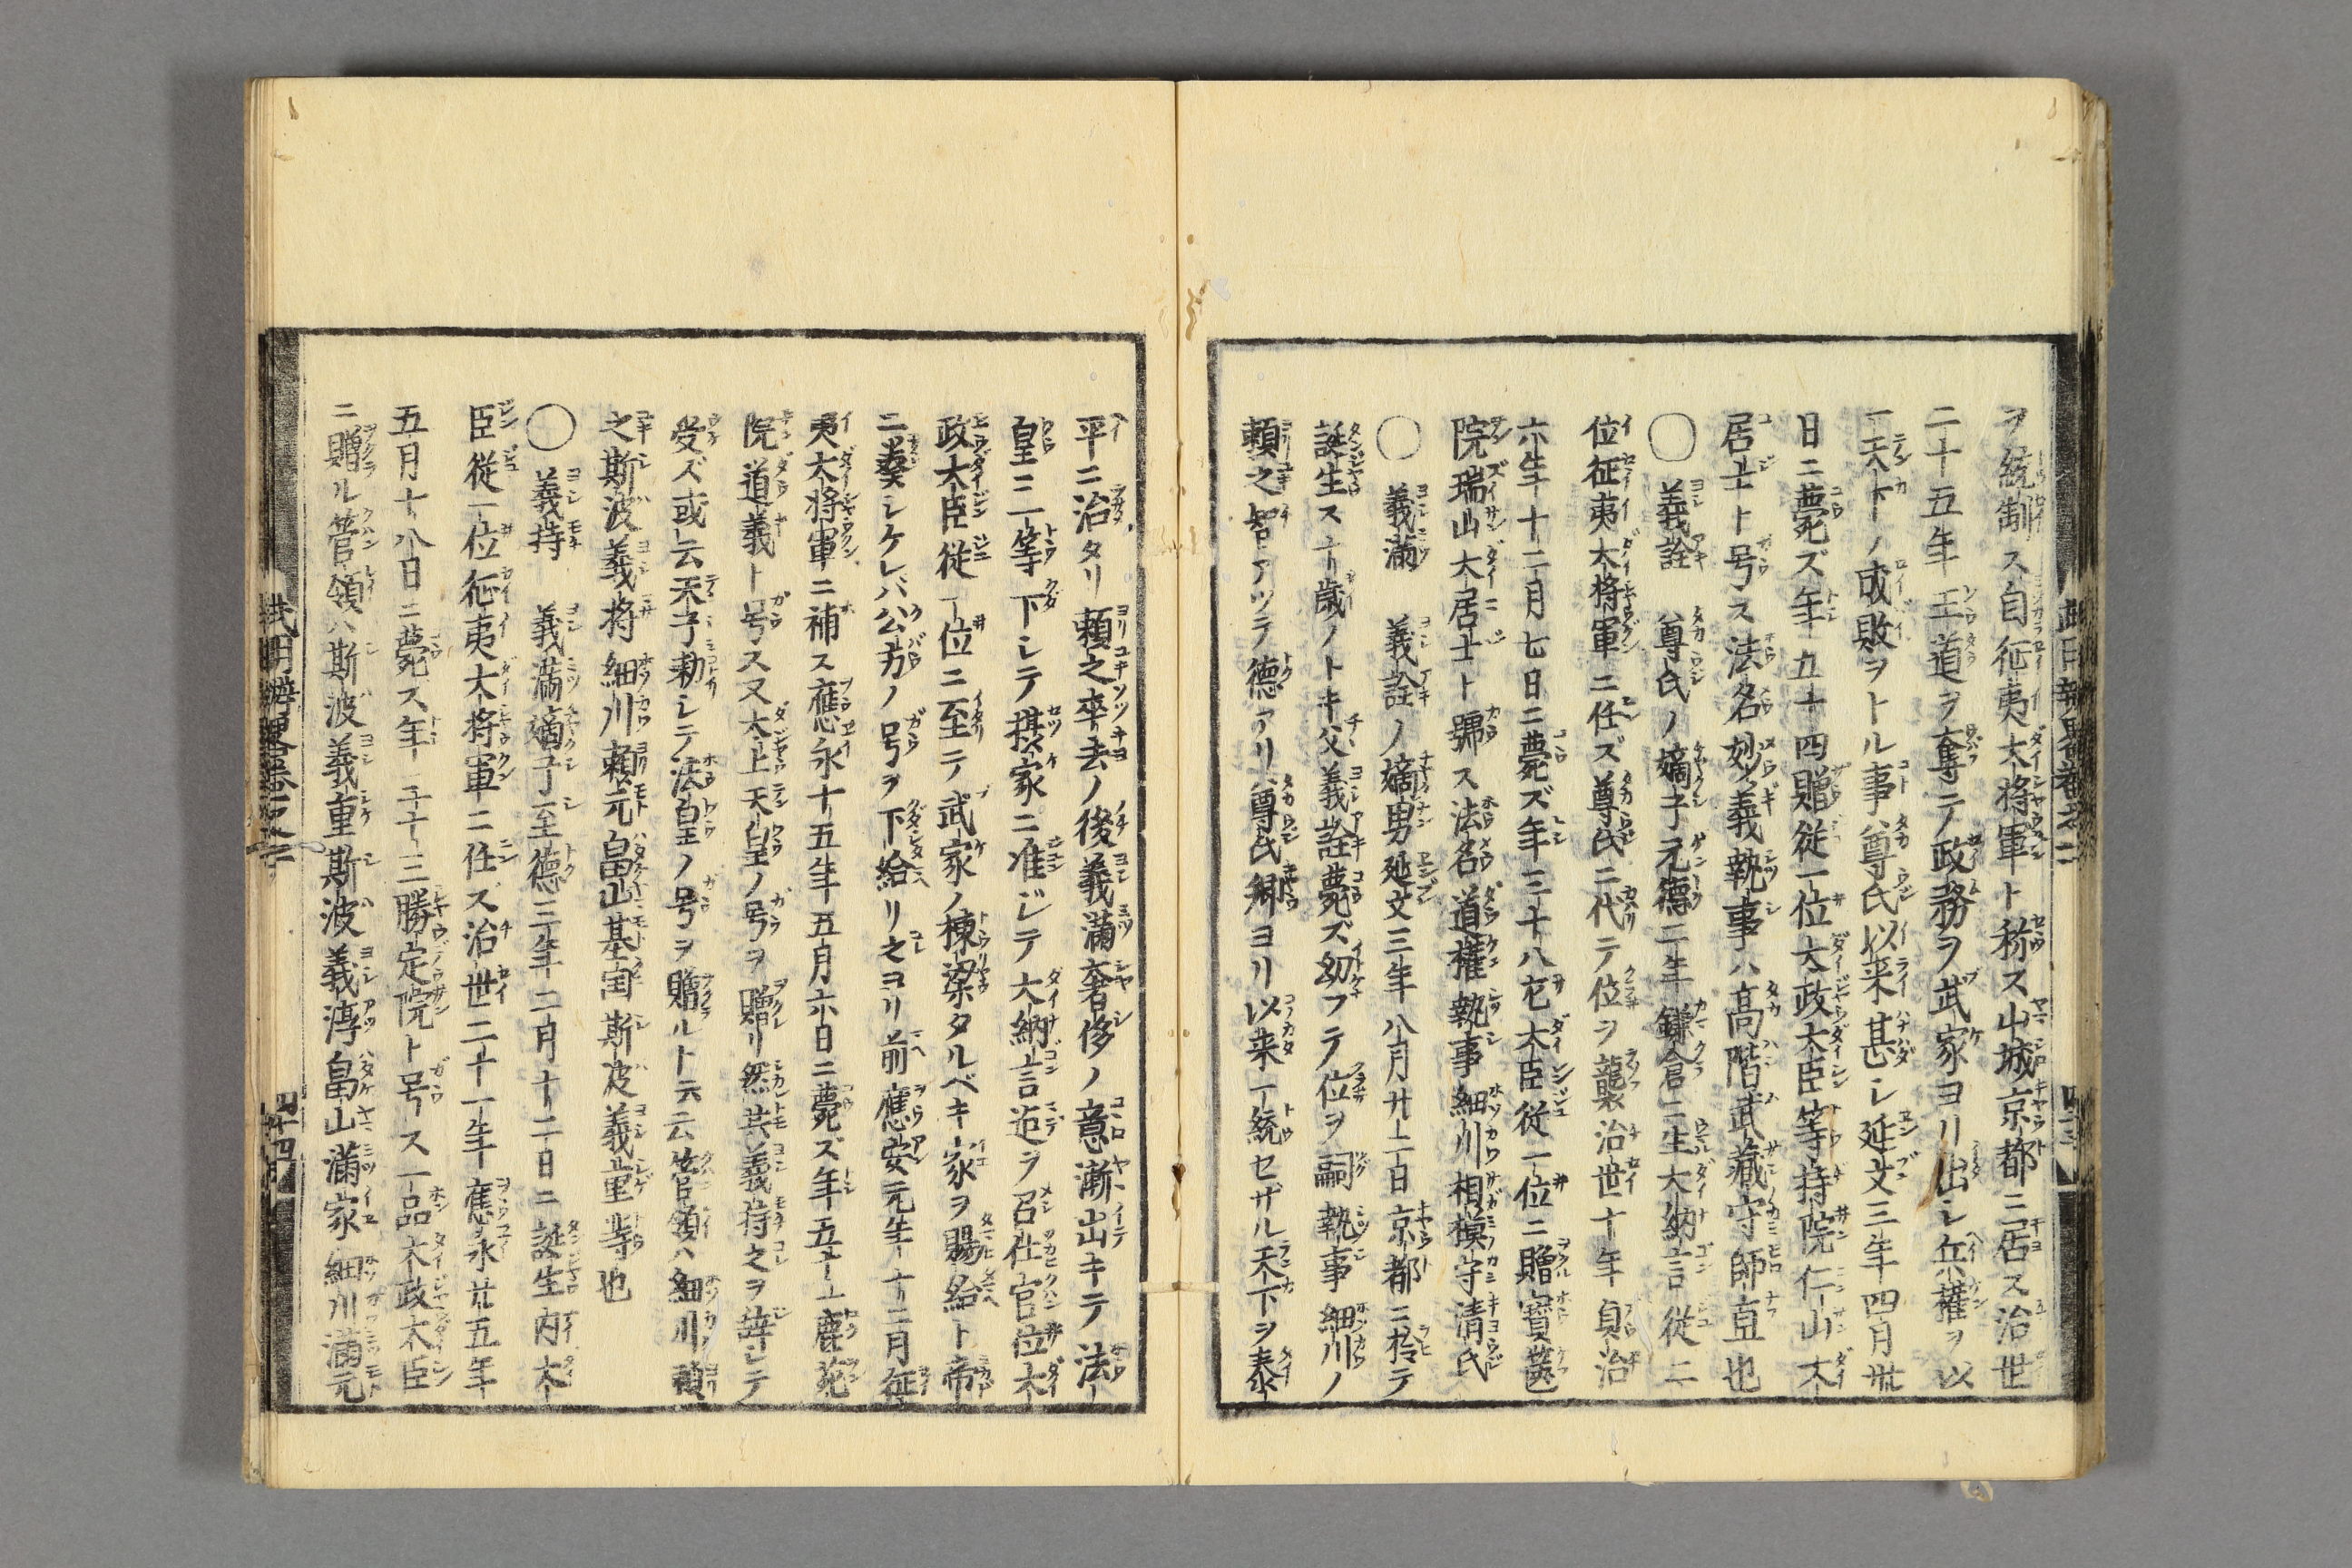 ヲ統制ス自征夷大将軍ト称ス山城京都ニ居ス治世
二十五年王道ヲ奪テ政務ヲ武家ヨリ出シ兵權ヲ以
一天下ノ成敗ヲトル事尊氏以来甚シ延文三年四月卅
日ニ薨ズ年五十四贈従一位大政大臣等持院仁山大
居士ト号ス法名妙義執事ハ高階武藏守師直也
〇義詮 尊氏ノ嫡子元德二年鎌倉ニ生大納言従二
位征夷大将軍ニ任ズ尊氏ニ代テ位ヲ襲治世十年貞治
六年十二月七日ニ薨ズ年三十八左大臣従一位ニ贈寳篋
院瑞山大居士ト號ス法名道權執事細川相模守清氏
〇義滿 義詮ノ嫡男延文三年八月廿二日京都ニ於テ
誕生ス十歳ノトキ父義詮薨ズ幼フテ位ヲ嗣執事細川ノ
頼之智アツテ德アリ尊氏卿ヨリ以来一統セザル天下ヲ泰
平ニ治タリ頼之卒去ノ後義滿奢侈ノ意漸出キテ法
皇ニ一等下シテ摂家ニ准ジテ大納言迄ヲ召仕官位太
政大臣従一位ニ至テ武家ノ棟梁タルベキ家ヲ賜給ト帝
ニ奏シケレバ公方ノ号ヲ下給リ之ヨリ前應安元年十二月征
夷大将軍ニ補ス應永十五年五月六日ニ薨ズ年五十一鹿苑
院道義ト号ス又太上天皇ノ号ヲ贈リ然共義持之ヲ辞シテ
受ズ或云天子勅シテ法皇ノ号ヲ贈ルト云云管領ハ細川頼
之斯波義将細川頼元畠山基国斯波義重等也
〇義持 義滿嫡子至德三年二月十二日ニ誕生内大
臣従一位征夷大将軍ニ任ズ治世二十一年應永廿五年
五月十八日ニ薨ス年三十三勝定院ト号ス一品太政大臣
ニ贈ル管領ハ斯波義重斯波義淳畠山滿家細川滿元